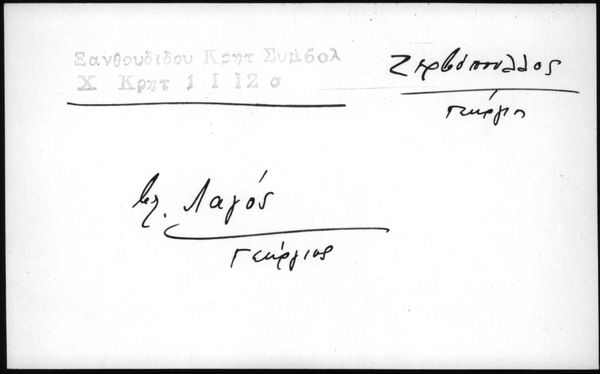 Ξανθουδιδου Κρητ Συμβολ
Χ Κρητ 1 Ι 12 σ
Ζερβόπουλλος
Γεώργιος
βλ. Λαγός
Γεώργιος